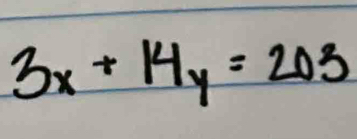 3x + 14y = 203